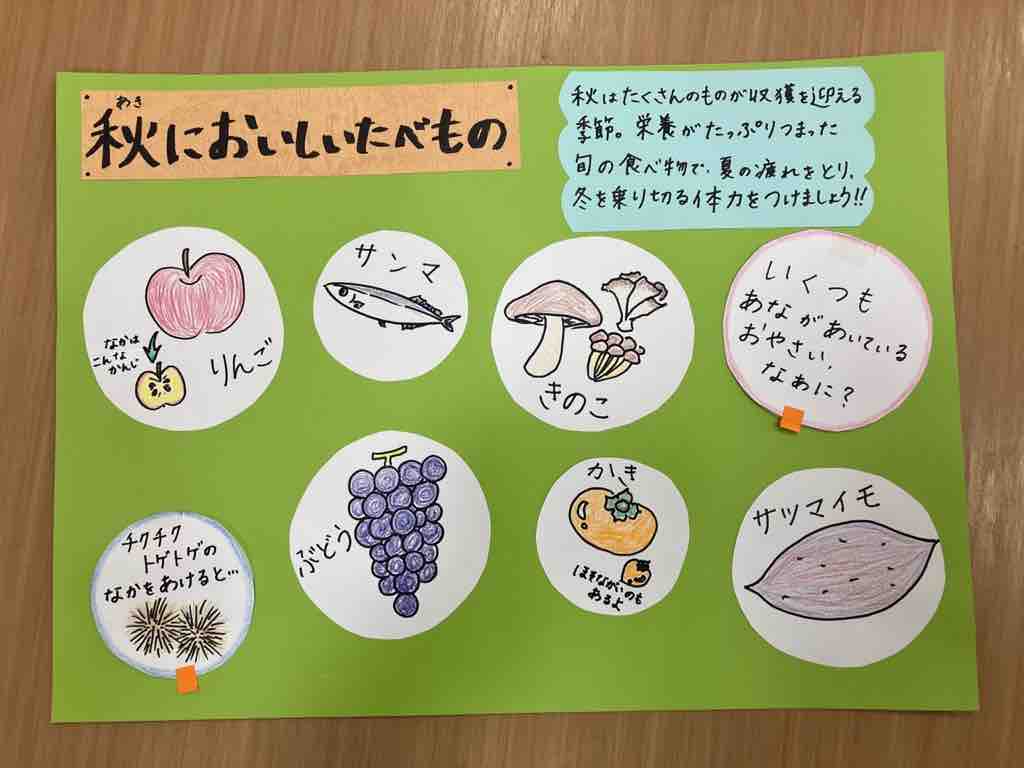 あき
秋においしいたべもの
秋はたくさんのものが収穫を迎える
季節。栄養がたっぷりつまった
旬の食べ物で、夏の疲れをとり、
冬を乗り切る体力をつけましょう!!
なかは
こんな
かんじ
りんご
サンマ
きのこ
いくつも
あながあいている
おやさい、
なぁに?
チクチク
トゲトゲの
なかをあけると…
ぶどう
かき
ほそながいのも
あるよ
サツマイモ